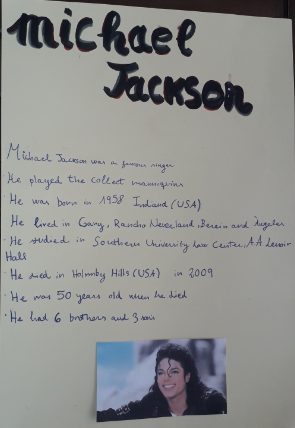 michael
Jackson
Michael Jackson was a famous singer
He played the collect
· He was born in 1958 Indiand (USA)
He lived in Gary, Rancho Neverland, and
· He studied in Southern University Law Center, A.A. Lenoir
Hall
· He died in Holmby Hills (USA) in 2009
· He was 50 years old when he died
· He had 6 brothers and 3